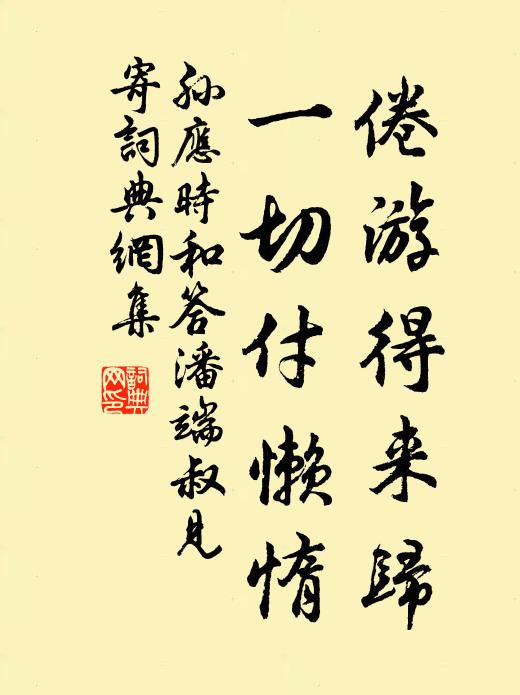 倦游得来歸
一切付懒惰
孙應時和答潘端叔見
寄詞典網集
詞典網印